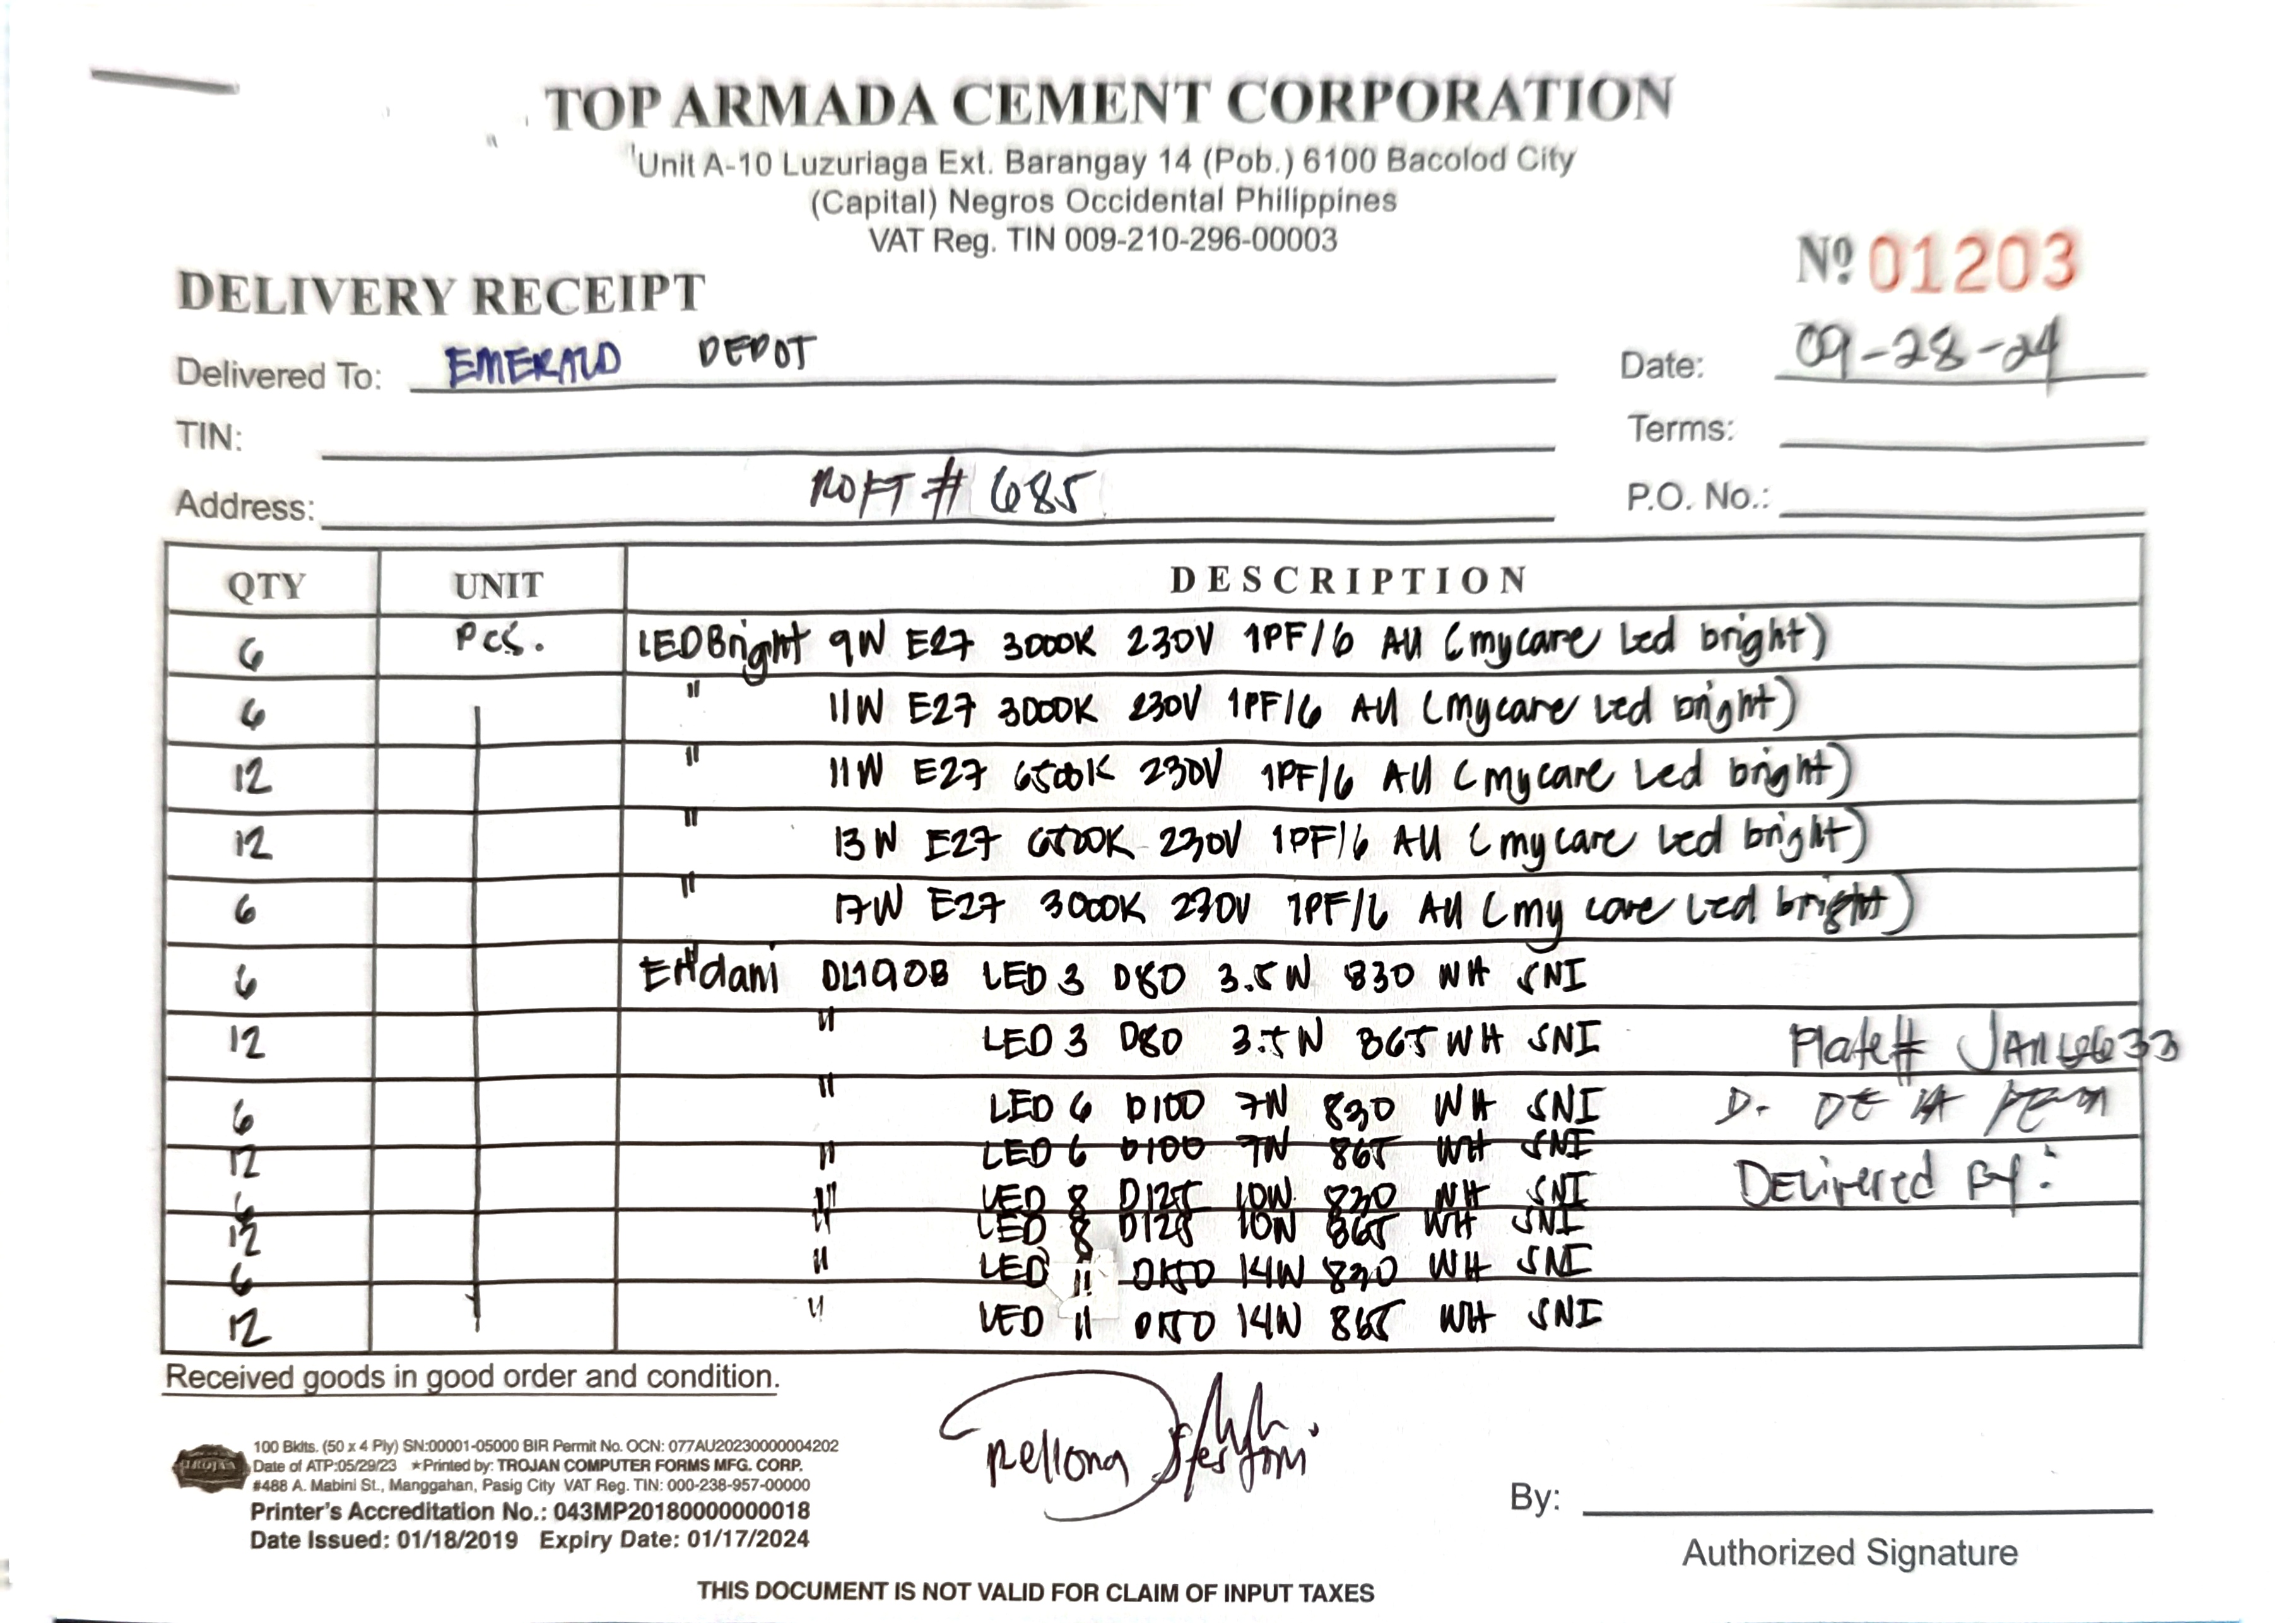 TOP ARMADA CEMENT CORPORATION
Unit A-10 Luzuriaga Ext. Barangay 14 (Pob.) 6100 Bacolod City
(Capital) Negros Occidental Philippines
VAT Reg. TIN 009-210-296-00003
Nº 01203
DELIVERY RECEIPT
Delivered To: EMERALD DEPOT Date: 09-28-24
TIN: Terms:
Address: ROFT # 685 P.O. No.:
QTY UNIT DESCRIPTION
6 Pcs. LEDBright 9W E27 3000K 230V 1PF/6 AU (mycare Led bright)
6 " 11W E27 3000K 230V 1PF/6 AU (mycare Led bright)
12 " 11W E27 6500K 230V 1PF/6 AU (mycare Led bright)
12 " 13W E27 6500K 230V 1PF/6 AU (mycare Led bright)
6 " 17W E27 3000K 230V 1PF/6 AU (my care Led bright)
6 DL190B LED 3 D80 3.5W 830 WH SNI
12 " LED 3 D80 3.5W 865 WH SNI Plate#
6 " LED 6 D100 7W 830 WH SNI D. DE LA PENA
12 " LED 6 D100 7W 865 WH SNI
6 " LED 8 D125 10W 830 WH SNI Delivered By:
12 " LED 8 D125 10W 865 WH SNI
6 " LED 11 D150 14W 830 WH SNI
12 " LED 11 D150 14W 865 WH SNI
Received goods in good order and condition.
TROJAN
100 Bklts. (50 x 4 Ply) SN:00001-05000 BIR Permit No. OCN: 077AU20230000004202
Date of ATP:05/29/23 ★Printed by: TROJAN COMPUTER FORMS MFG. CORP.
#488 A. Mabini St., Manggahan, Pasig City VAT Reg. TIN: 000-238-957-00000
Printer's Accreditation No.: 043MP20180000000018
Date Issued: 01/18/2019 Expiry Date: 01/17/2024
By:
Authorized Signature
THIS DOCUMENT IS NOT VALID FOR CLAIM OF INPUT TAXES